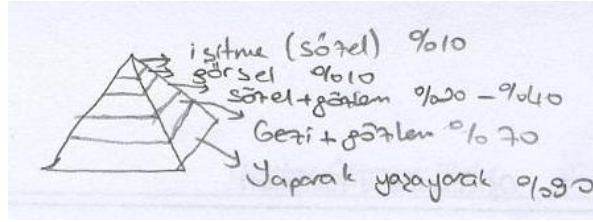 işitme (sözel) %10
görsel %10
sözel+gözlem %20 - %40
Gezi + gözlem %70
Yaparak yaşayarak %90